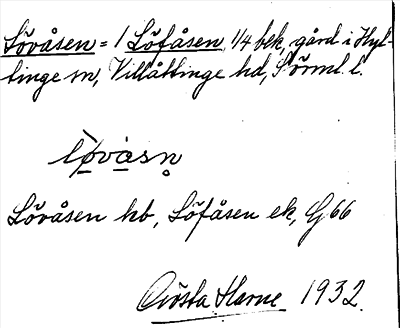 Lövåsen = 1 Löfåsen, 1/4 bek, gård i Hyl-
tinge sn, Villåttinge hd, Sörml. l.
Lövåsen kb, Löfåsen ek, G 66
Gösta Harne 1932.